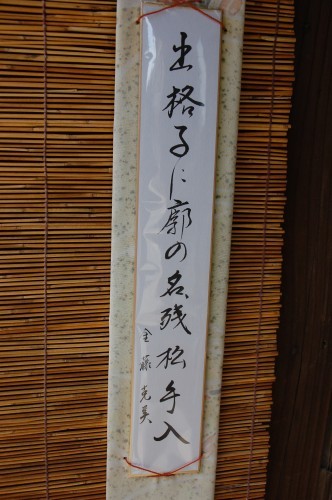 出格子に廓の名残松手入
金藤克美